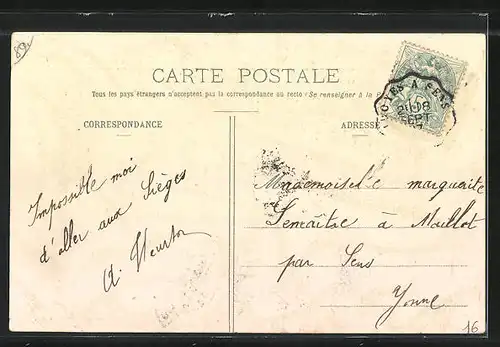 89
CARTE POSTALE
Tous les pays étrangers n'acceptent pas la correspondance au recto (Se renseigner à la P
CORRESPONDANCE
ADRESSE
A SENS
SEPT
Impossible moi
d'aller aux Sièges
A.
Mademoiselle marguerite
Lemaître à Maillot
par Sens
Yonne
16